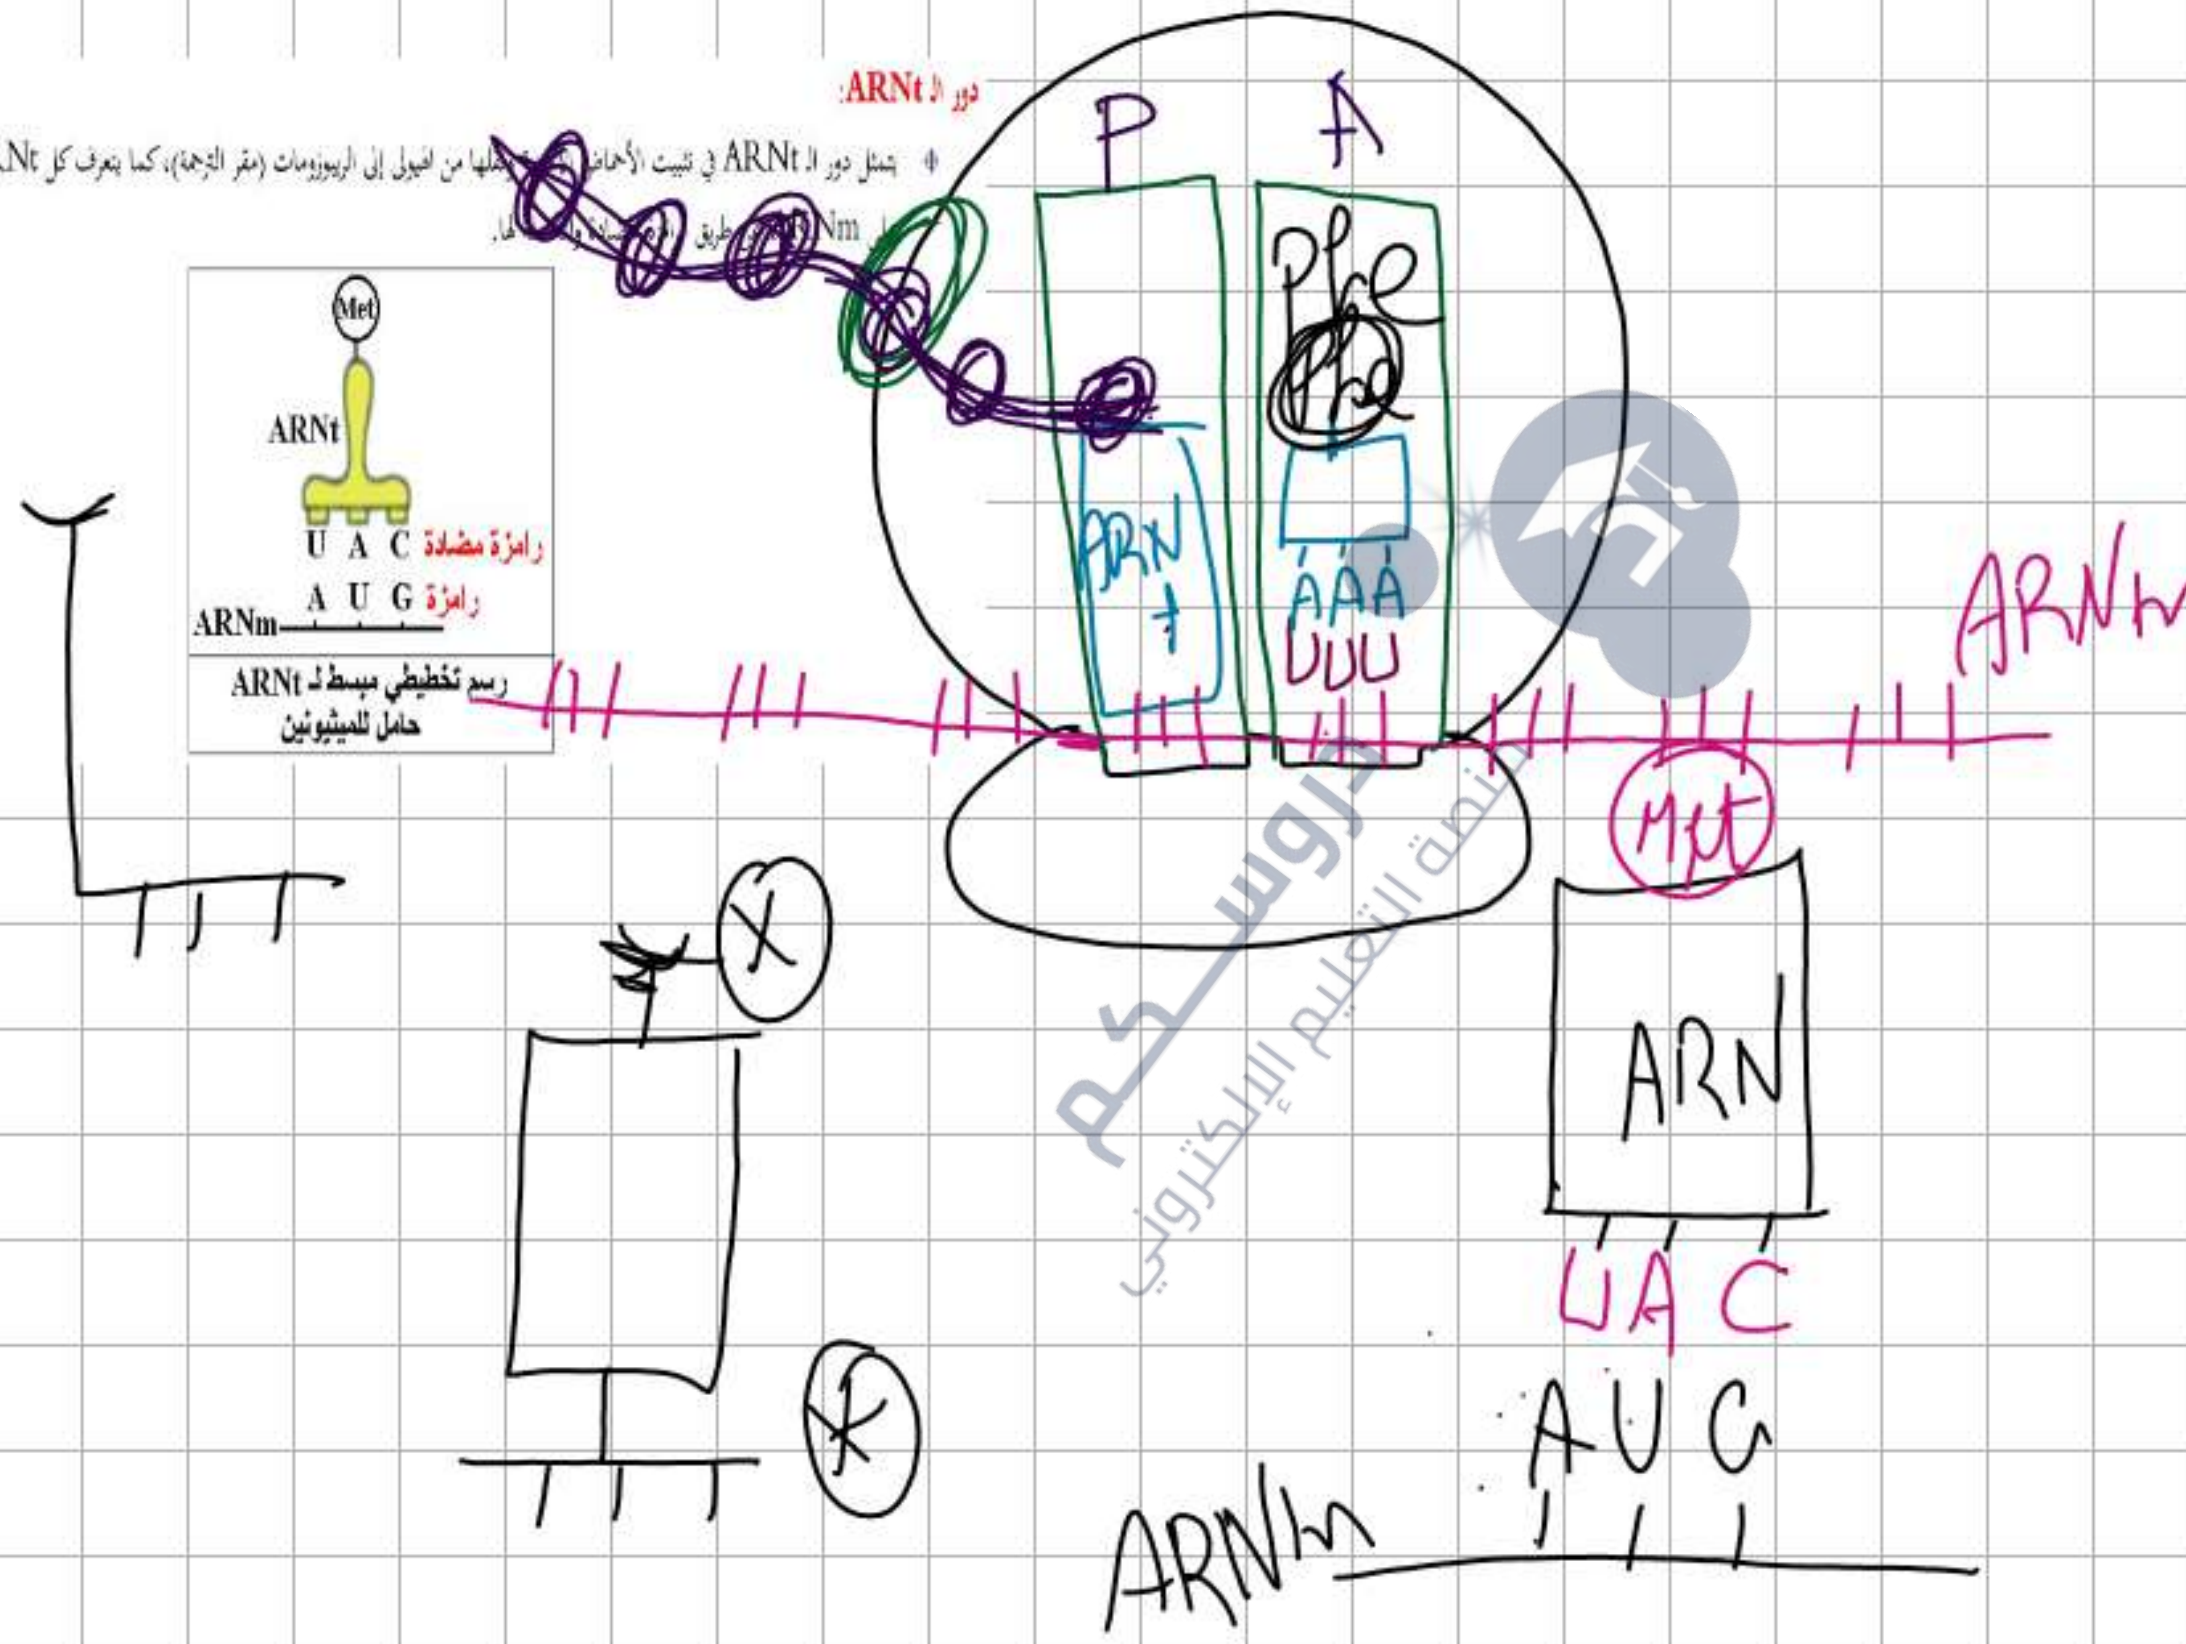 دور الـ ARNt:
يتمثل دور الـ ARNt في تثبيت الأحماض ونقلها من الهيولى إلى الريبوزومات (مقر الترجمة)، كما يتعرف كل
طريق
لها.
P
A
Phe
Phe
Met
ARNt
U A C رامزة مضادة
A U G رامزة
ARNm
رسم تخطيطي مبسط لـ ARNt
حامل للميثيونين
ARN
t
AAA
UUU
ARNm
Met
X
ARN
UAC
AUG
ARNm
دروسكم
منصة التعليم الإلكتروني